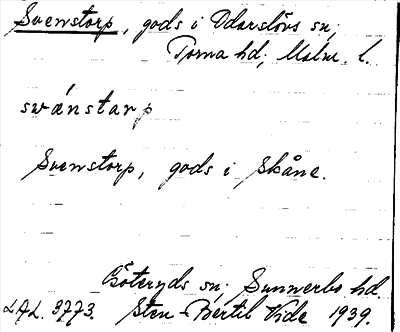 Svenstorp, gods i Odarslövs sn;
Torna hd; Malm. l.
swánstarp
Svenstorp, gods i Skåne.
Göteryds sn; Sunnerbo hd
LAL. 3773. Sten-Bertil Vide 1939.